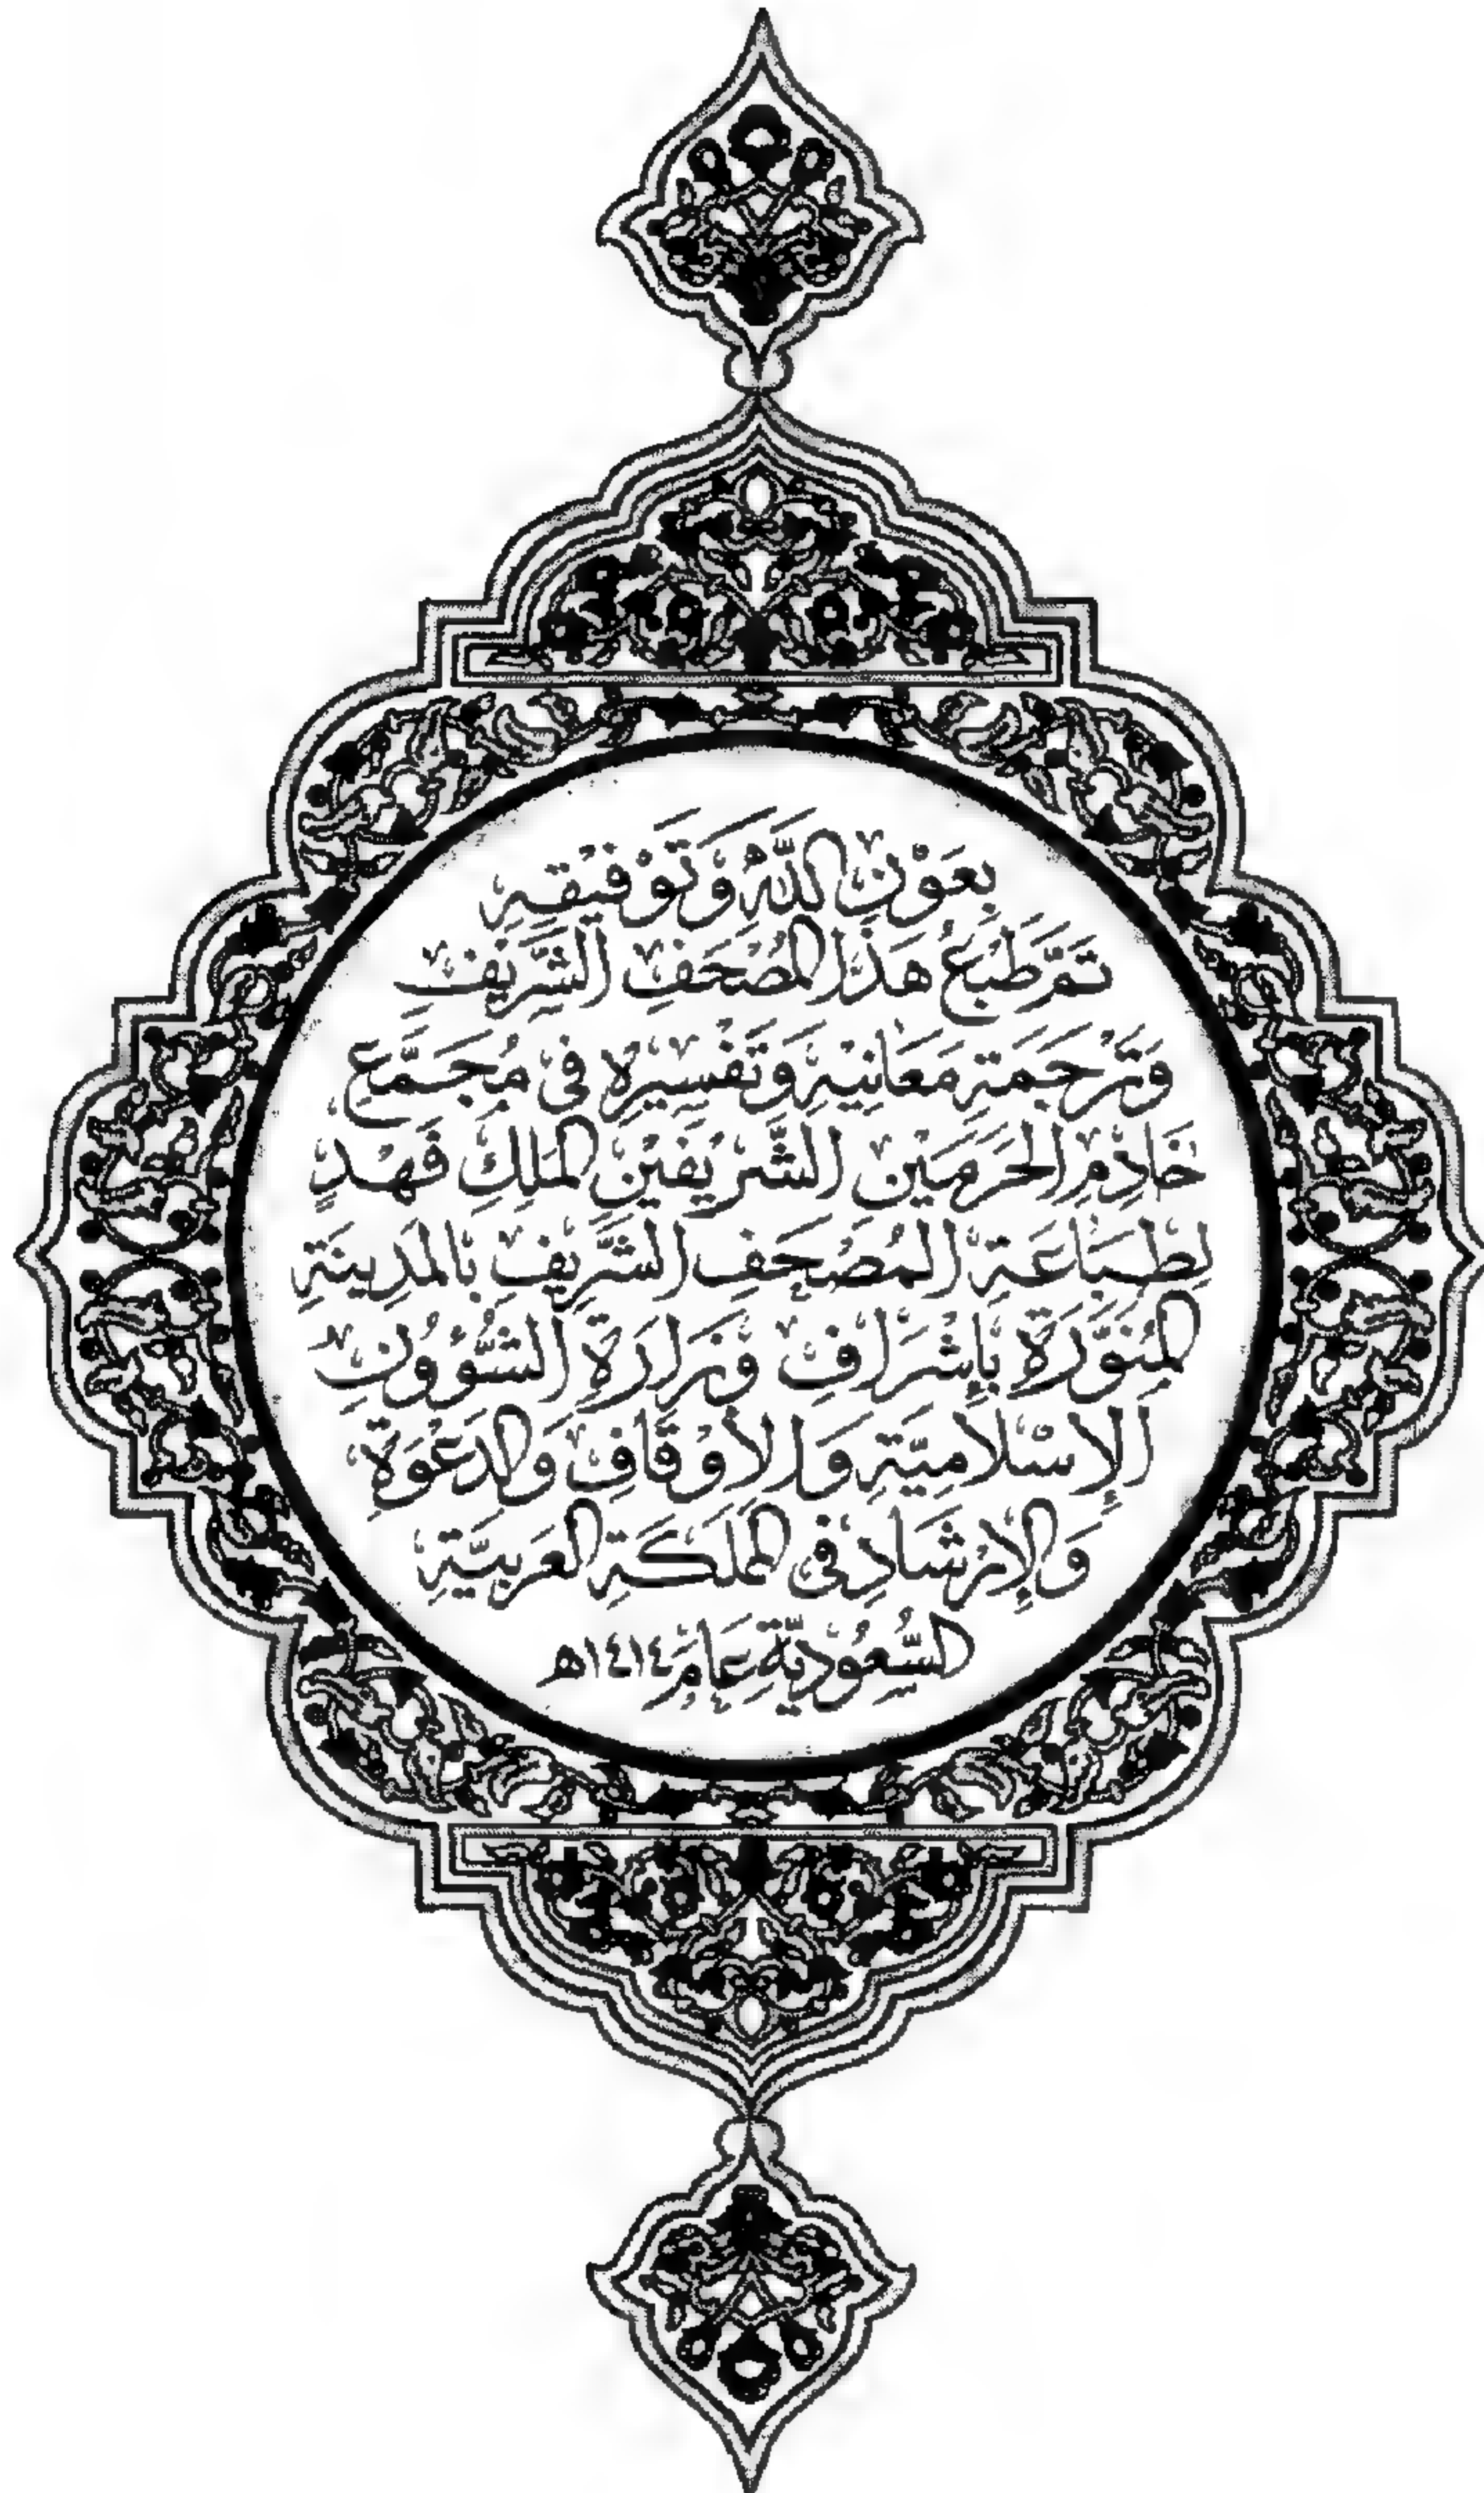 بِعَوْنِ اللَّهِ وَتَوْفِيْقِهِ
تَمَّ طَبْعُ هَذَا المُصْحَفِ الشَّرِيْفِ
وَتَرْجَمَةِ مَعَانِيْهِ وَتَفْسِيْرِهِ فِي مُجَمَّعِ
خَادِمِ الْحَرَمَيْنِ الشَّرِيْفَيْنِ المَلِكِ فَهْدٍ
لِطِبَاعَةِ الْمُصْحَفِ الشَّرِيْفِ بِالمَدِيْنَةِ
المُنَوَّرَةِ بِإِشْرَافِ وَزَارَةِ الشُّؤُوْنِ
الإِسْلَامِيَّةِ وَالأَوْقَافِ وَالدَّعْوَةِ
وَالإِرْشَادِ فِي المَمْلَكَةِ العَرَبِيَّةِ
السُّعُوْدِيَّةِ عَامَ ١٤١٤هـ